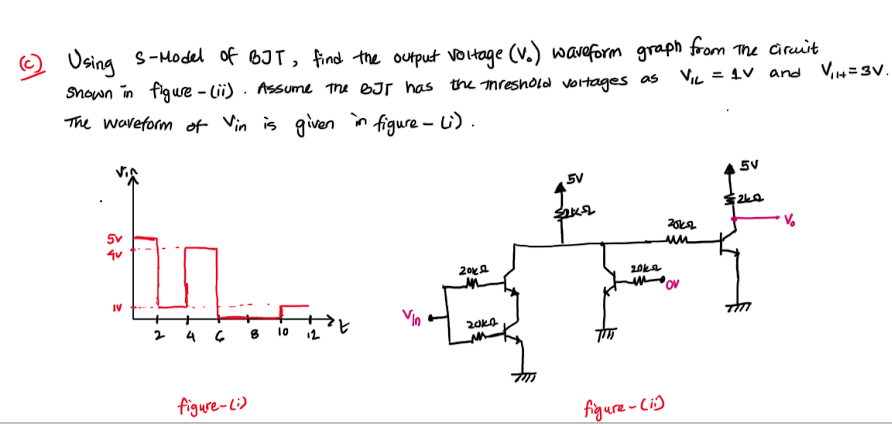 (c) Using S-Model of BJT, find the output voltage (Vo) waveform graph from the circuit
shown in figure-(ii). Assume the BJT has the threshold voltages as VIL = 1V and VIH=3V.
The waveform of Vin is given in figure-(i).
Vin
5V
4V
1V
2 4 6 8 10 12 t
figure-(i)
5V
5V
2kΩ
20kΩ
Vo
20kΩ
20kΩ
0V
Vin
20kΩ
figure-(ii)